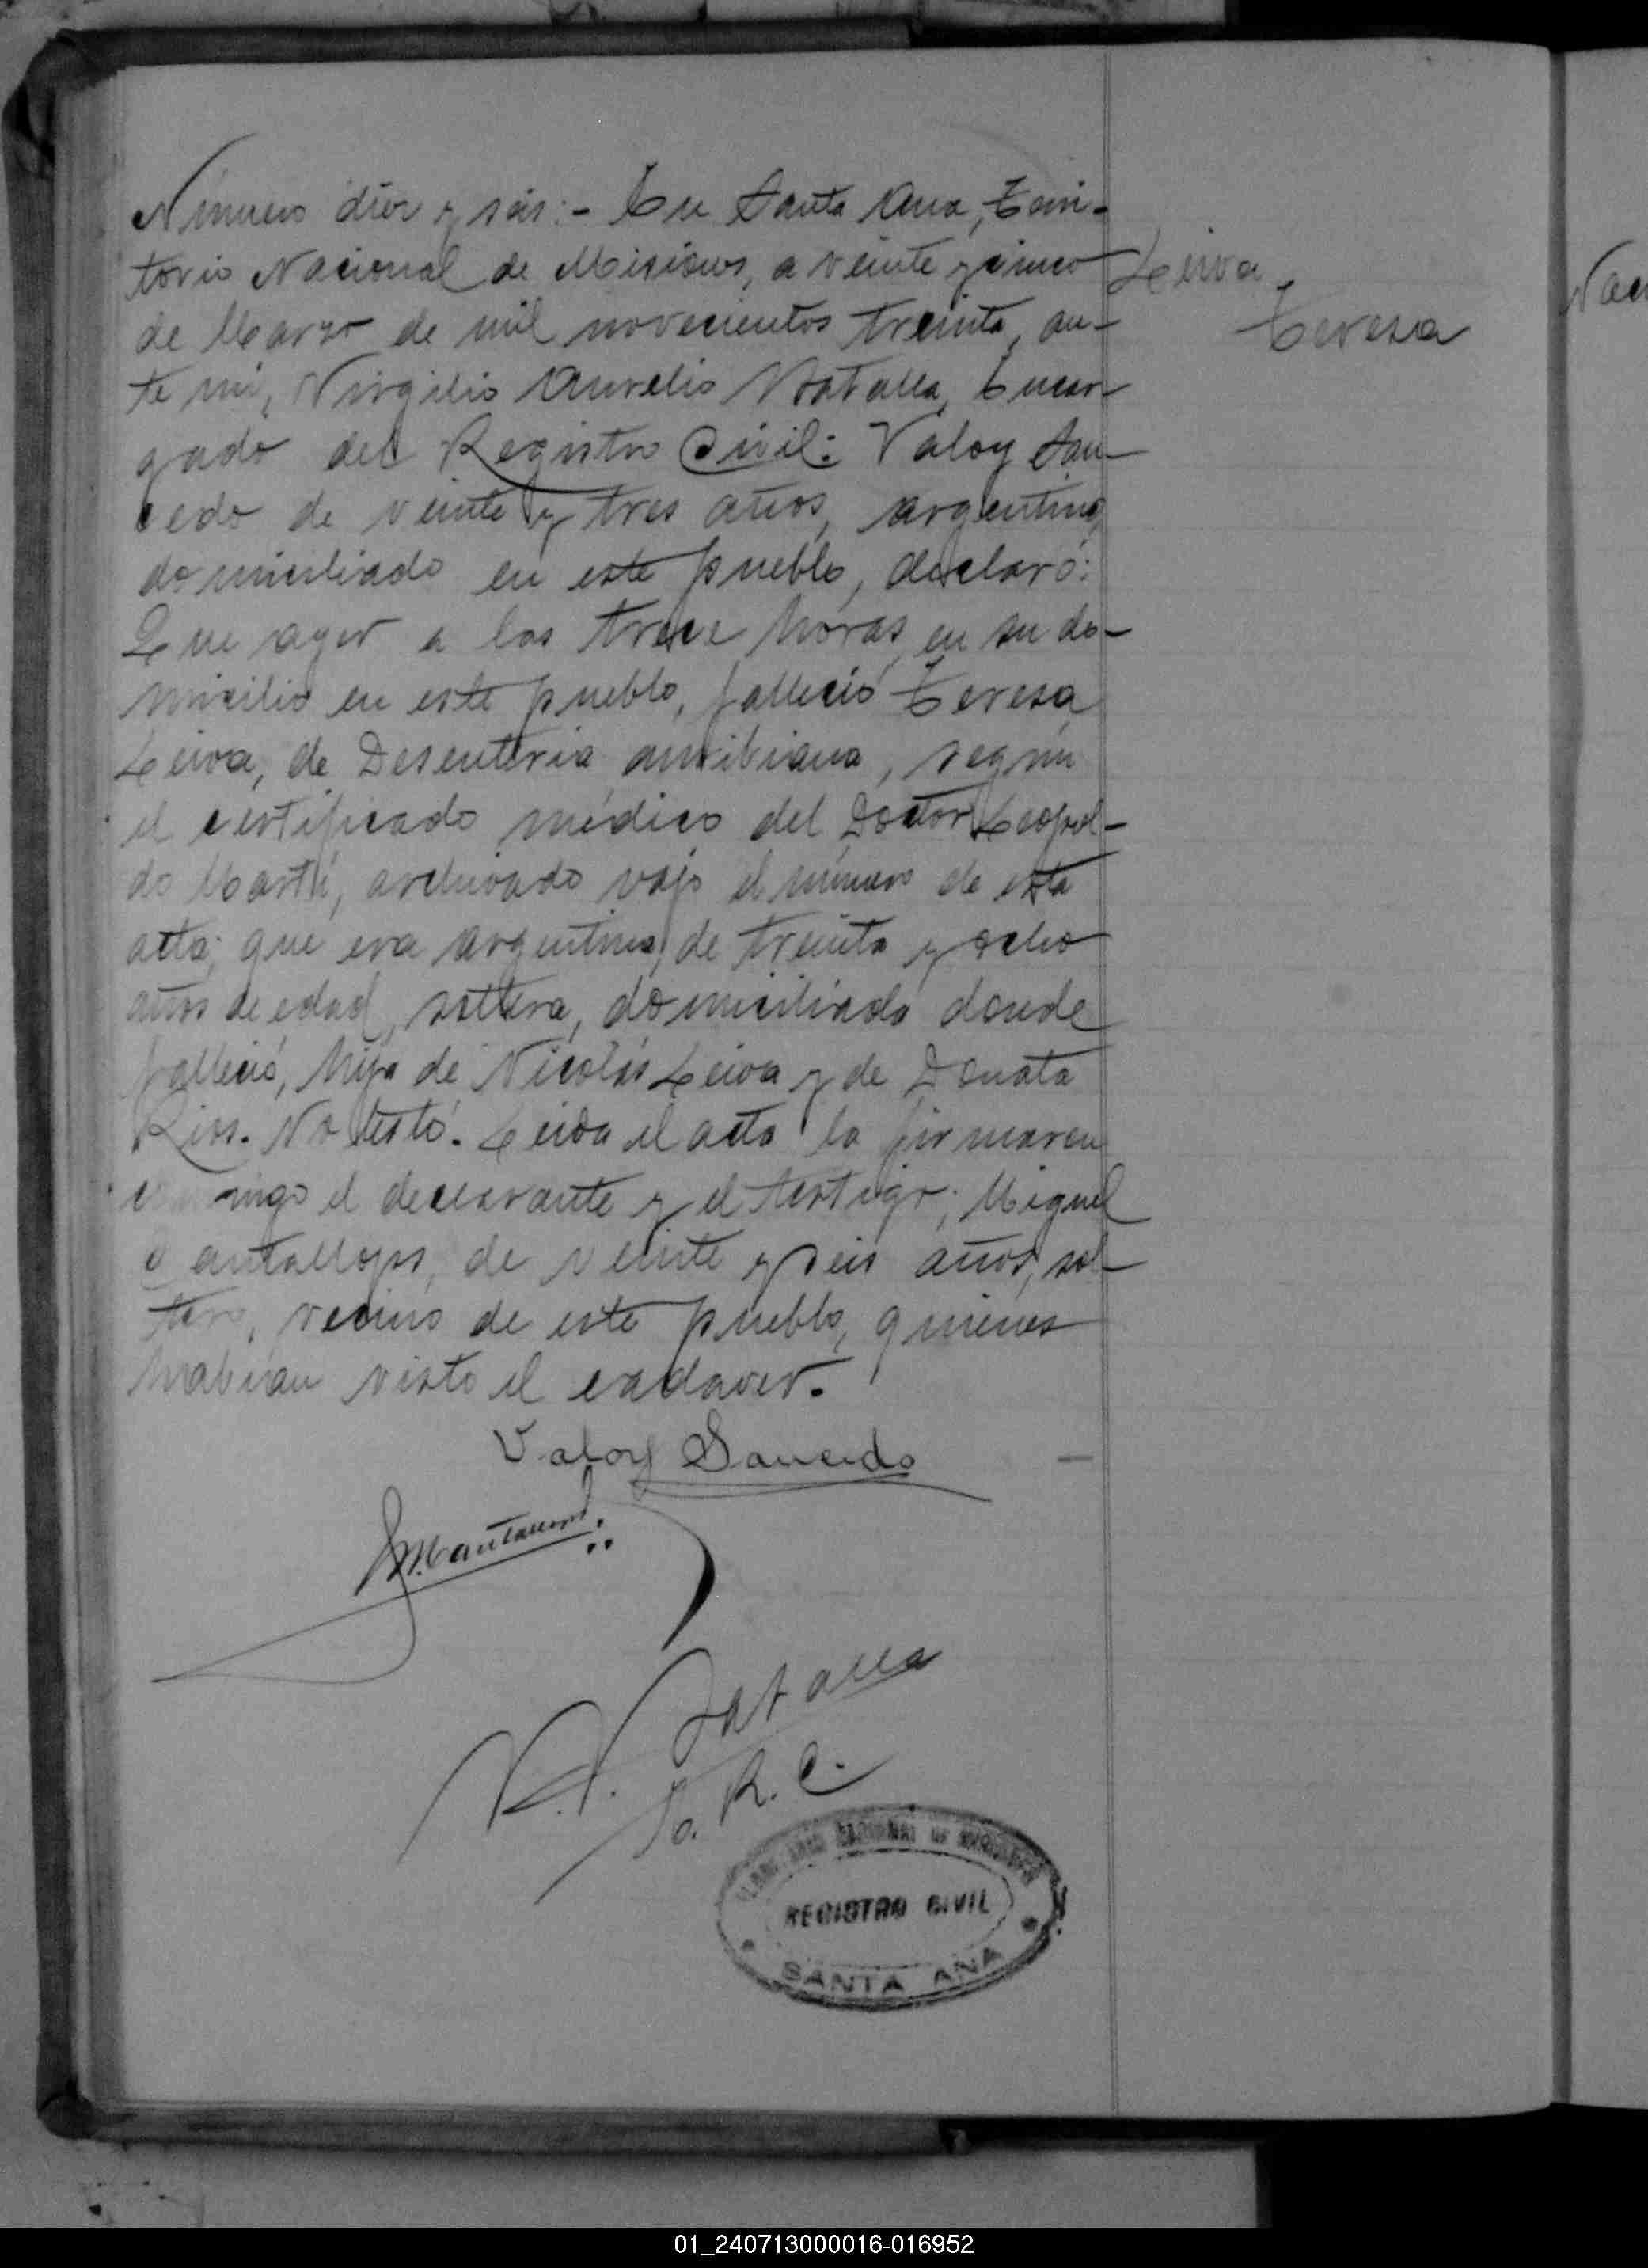 Número diez y seis:- En Santa Ana, Terri-
torio Nacional de Misiones, a veinte y cinco
de Marzo de mil novecientos treinta, an-
te mi, Virgilio Aurelio Natalla, Encar-
gado del Registro Civil: Valoy Sau-
cedo de veinte y tres años, argentino,
domiciliado en este pueblo, declaró:
Que ayer a las trece horas, en su do-
micilio en este pueblo, falleció Teresa
Leiva, de Desenteria amibiana, según
el certificado médico del Doctor Leopol-
do Martí, archivado vajo el número de esta
acta; que era argentina, de treinta y ocho
años de edad, soltera, domiciliada donde
falleció, hija de Nicolás Leiva y de Donata
Rios. No testó. Leida el acta la firmaron
migo el declarante y el testigo; Miguel
Cantallops, de veinte y seis años, sol-
tero, vecino de este pueblo, quienes
habian visto el cadaver.
Leiva,
Teresa
Valoy Saucedo
R. C.
REGISTRO CIVIL
SANTA ANA
01_240713000016-016952